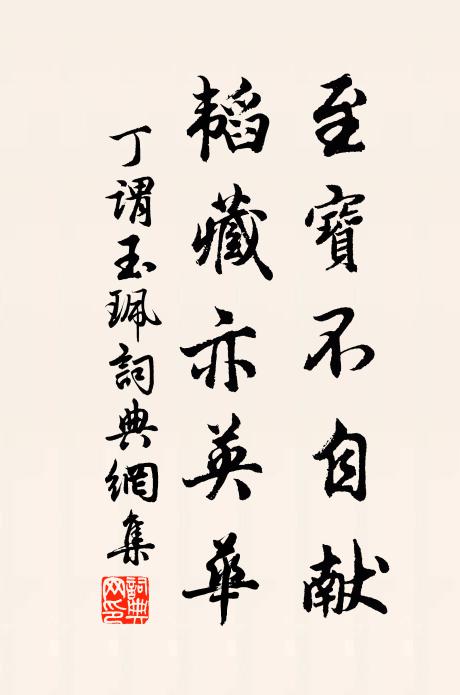 至寶不自献
韜藏亦英華
丁謂玉珮詞典網集
詞典網印